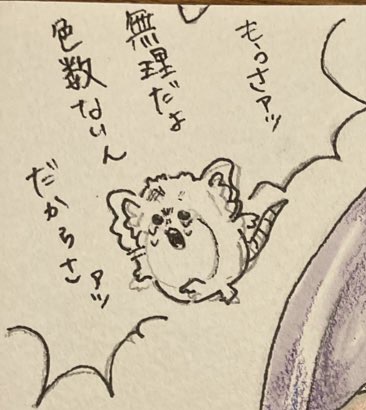 もうさァッ
無理だよ
色数ないん
だからさァッ